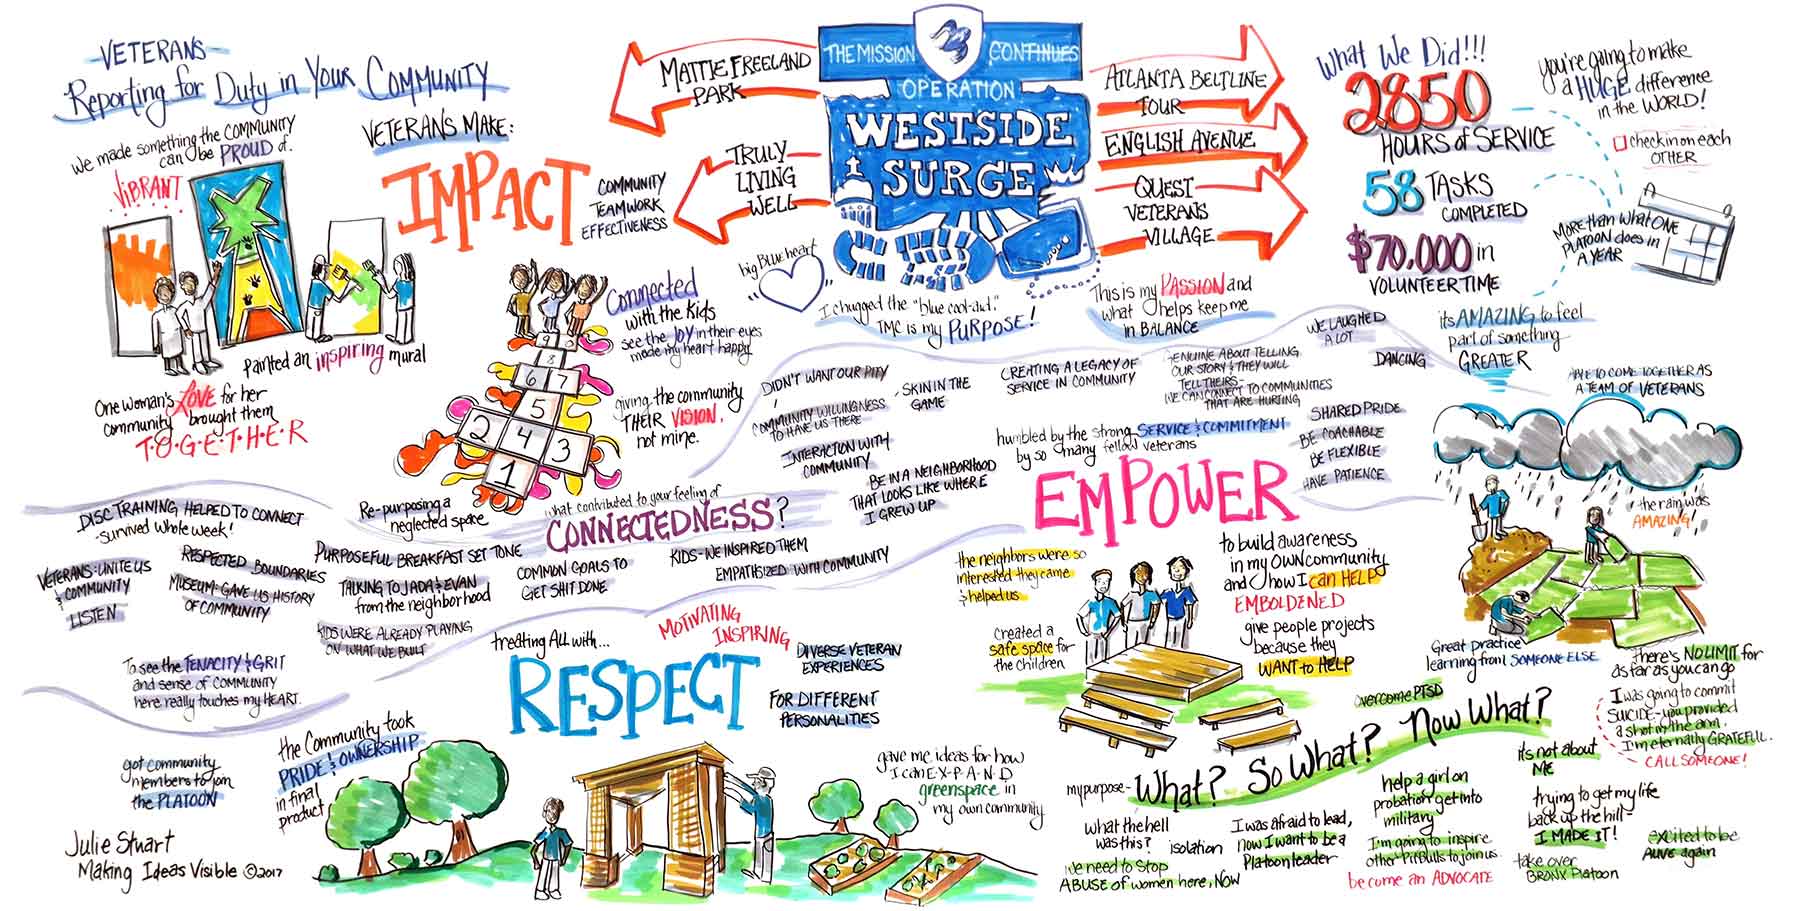 VETERANS
Reporting for Duty in Your COMMUNITY
VETERANS MAKE:
IMPACT
COMMUNITY
TEAMWORK
EFFECTIVENESS
we made something the COMMUNITY
can be PROUD of.
VIBRANT
painted an inspiring mural
One woman's LOVE for her
community brought them
T·O·G·E·T·H·E·R
MATTIE FREELAND
PARK
TRULY
LIVING
WELL
THE MISSION
CONTINUES
OPERATION
WESTSIDE
SURGE
ATLANTA BELTLINE
TOUR
ENGLISH AVENUE
QUEST
VETERANS
VILLAGE
What We Did!!!
2850
HOURS of SERVICE
58 TASKS
COMPLETED
$70,000 in
VOLUNTEER TIME
you're going to make
a HUGE difference
in the WORLD!
check in on each
OTHER
MORE than WHAT ONE
PLATOON does in
A YEAR
big BLUE heart
I chugged the "blue cool-aid."
TMC is my PURPOSE!
This is my PASSION and
what helps keep me
in BALANCE
its AMAZING to feel
part of something
GREATER
Connected
with the kids
see the JOY in their eyes
made my heart happy
giving the community
THEIR VISION,
not mine.
9
8
6 7
5
2 4 3
1
Re-purposing a
neglected space
what contributed to your feeling of
CONNECTEDNESS?
DIDN'T WANT OUR PITY
COMMUNITY WILLINGNESS
TO HAVE US THERE
INTERACTION WITH
COMMUNITY
SKIN IN THE
GAME
BE IN A NEIGHBORHOOD
THAT LOOKS LIKE WHERE
I GREW UP
CREATING A LEGACY OF
SERVICE IN COMMUNITY
GENUINE ABOUT TELLING
OUR STORY & THEY WILL
TELL THEIRS-
WE CAN CONNECT TO COMMUNITIES
THAT ARE HURTING
WE LAUGHED
A LOT
DANCING
humbled by the strong SERVICE & COMMITMENT
by so many fellow veterans
SHARED PRIDE
BE COACHABLE
BE FLEXIBLE
HAVE PATIENCE
ABLE TO COME TOGETHER AS
A TEAM OF VETERANS
DISC TRAINING HELPED TO CONNECT
-survived whole week!
VETERANS: UNITE US
& COMMUNITY
LISTEN
RESPECTED BOUNDARIES
MUSEUM: GAVE US HISTORY
OF COMMUNITY
PURPOSEFUL BREAKFAST SET TONE
TALKING TO JADA & EVAN
from the neighborhood
KIDS WERE ALREADY PLAYING
ON WHAT WE BUILT
COMMON GOALS TO
GET SHIT DONE
KIDS-WE INSPIRED THEM
EMPATHSIZED WITH COMMUNITY
To see the TENACITY & GRIT
and sense of COMMUNITY
here really touches my HEART.
EMPOWER
the neighbors were so
interested they came
& helped us
created a
safe space for
the children
to build awareness
in my OWN community
and how I can HELP
EMBOLDENED
give people projects
because they
WANT to HELP
the rain was
AMAZING!
Great practice
learning from SOMEONE ELSE
there's NO LIMIT for
as far as you can go
treating ALL with...
RESPECT
MOTIVATING
INSPIRING
DIVERSE VETERAN
EXPERIENCES
FOR DIFFERENT
PERSONALITIES
got community
members to join
the PLATOON
the Community took
PRIDE & OWNERSHIP
in final
product
gave me ideas for how
I can E·X·P·A·N·D
greenspace in
my own community
overcome PTSD
What? So What? Now What?
my purpose-
what the hell
was this?
isolation
we need to STOP
ABUSE of women here, NOW
I was afraid to lead,
now I want to be a
Platoon leader
help a girl on
probation get into
military
I'm going to inspire
other Pitbulls to join us
become an ADVOCATE
its not about
ME
trying to get my life
back up the hill-
I MADE IT!
take over
BRONX Platoon
I was going to commit
SUICIDE-you provided
a shot in the arm.
I'm eternally GRATEFUL.
CALL SOMEONE!
excited to be
ALIVE again
Julie Stuart
Making Ideas Visible ©2017